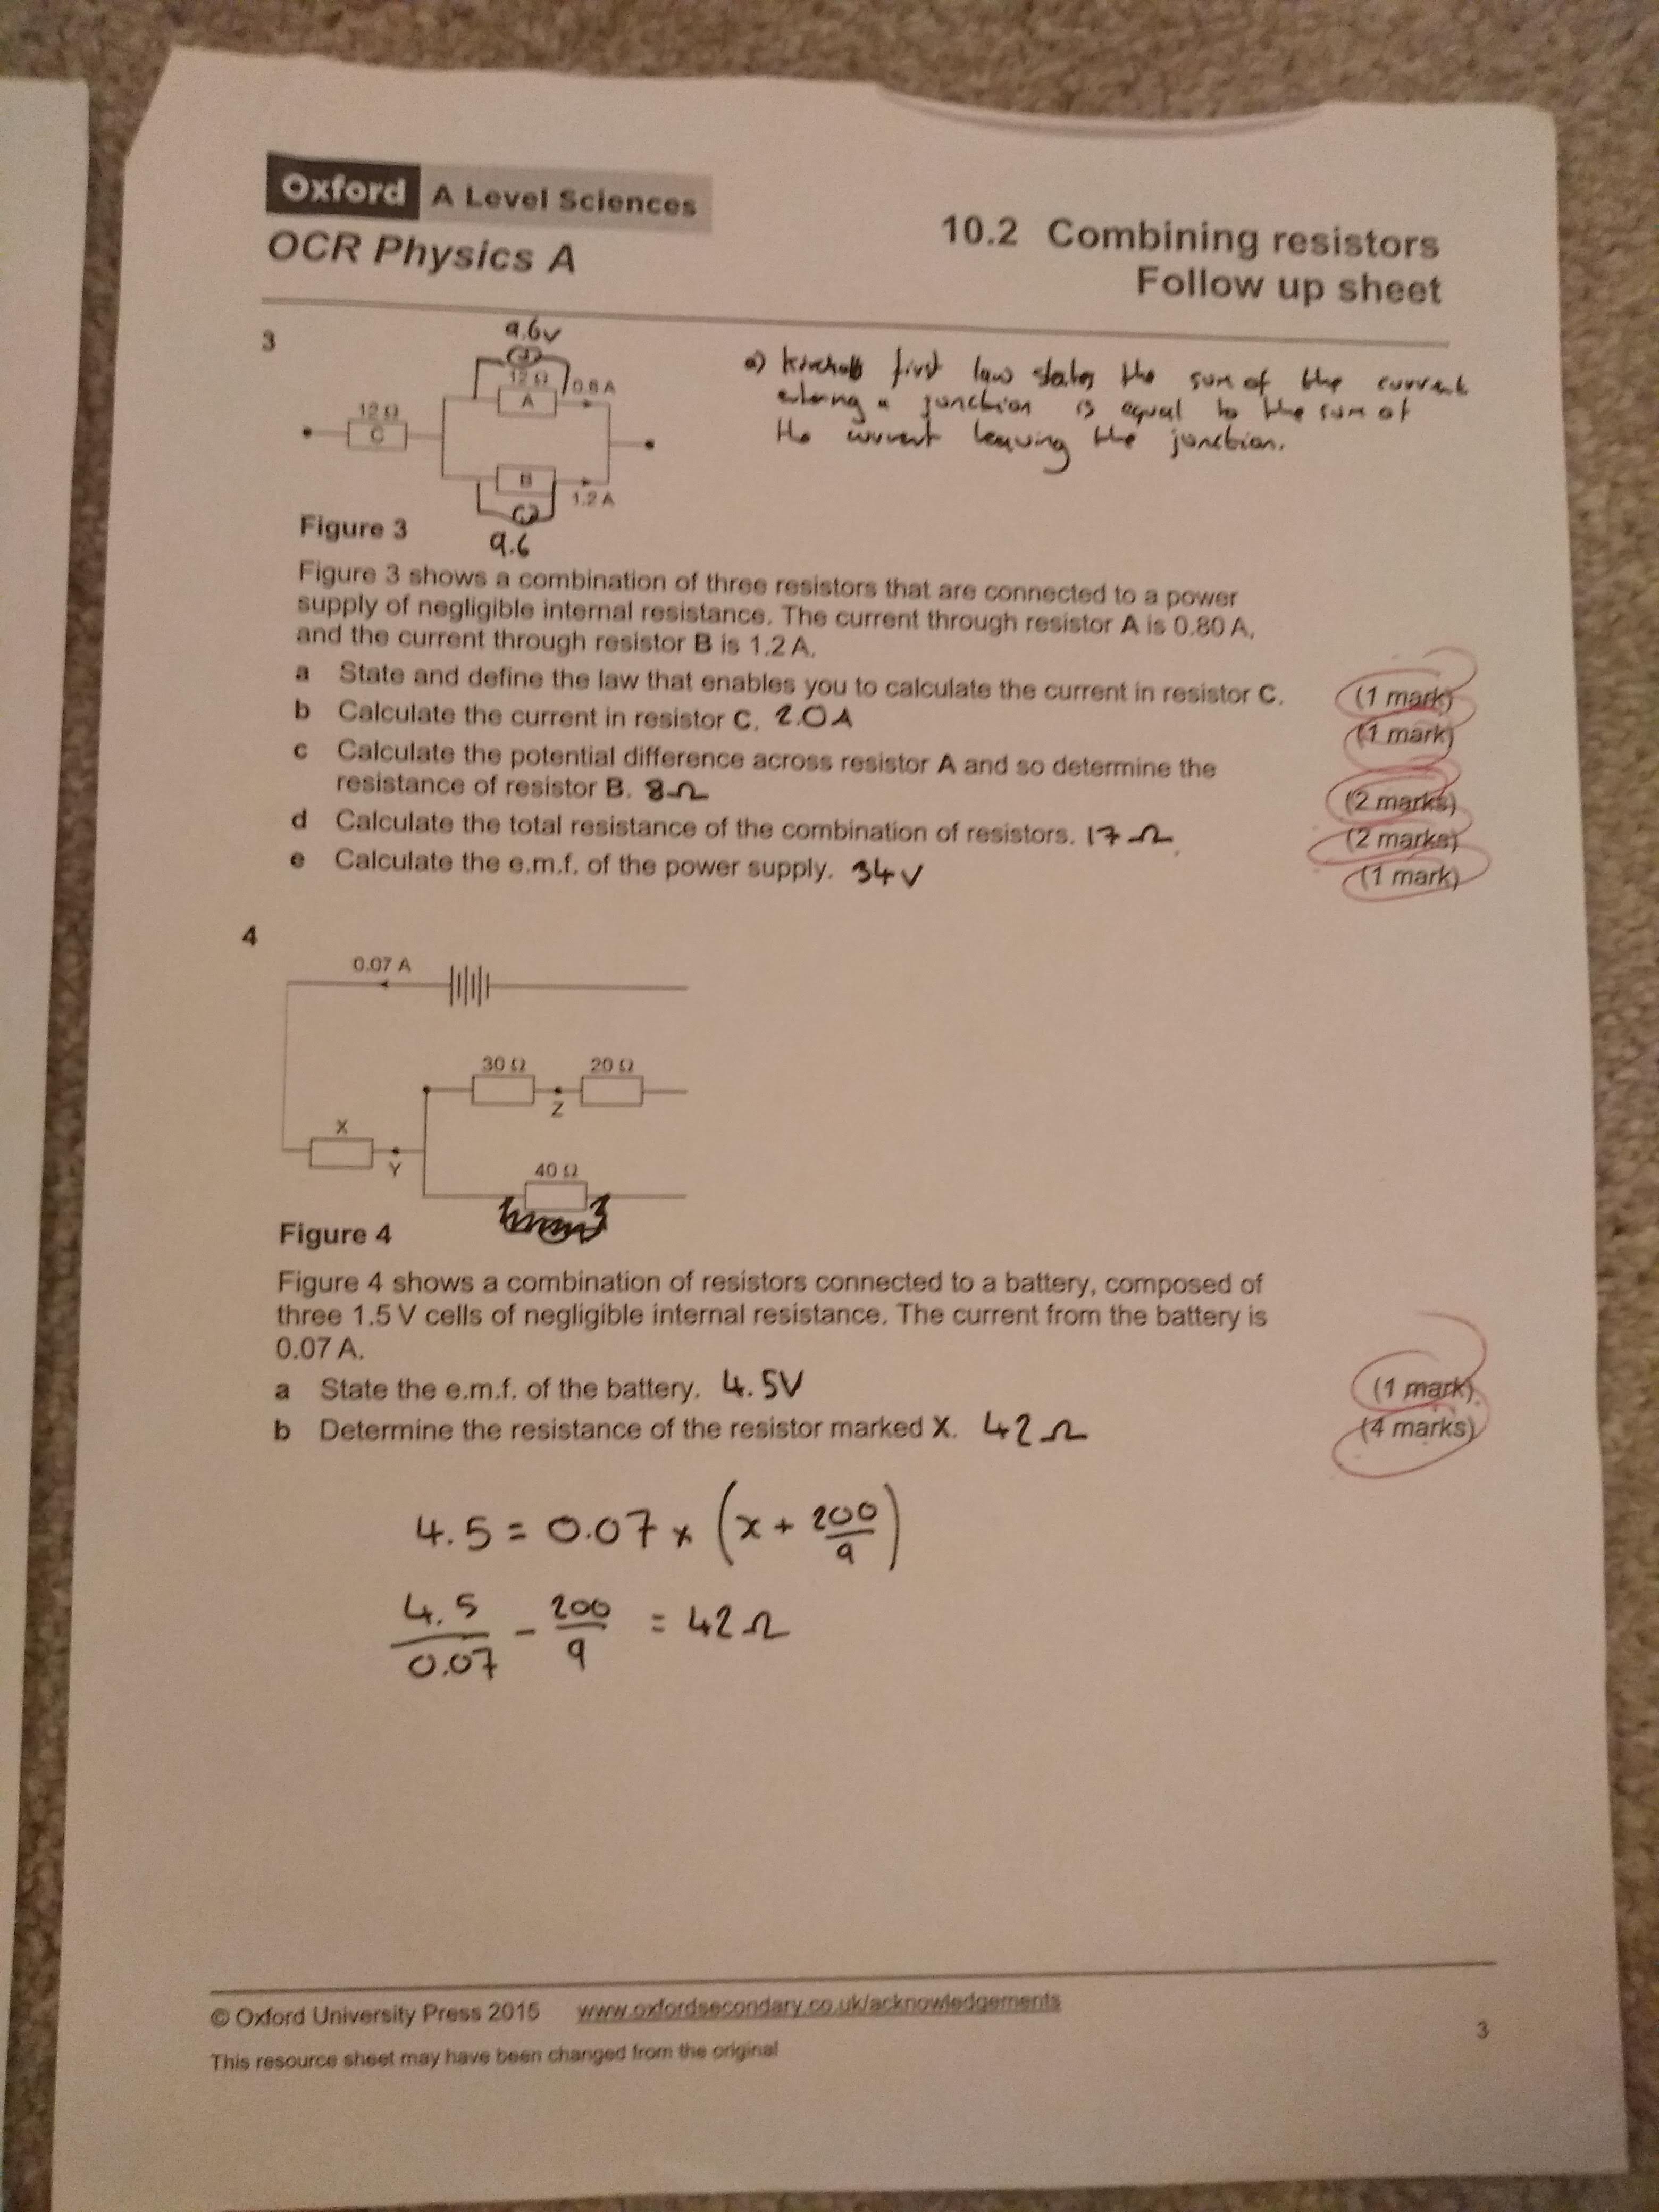 Oxford A Level Sciences
OCR Physics A
10.2 Combining resistors
Follow up sheet
3
9.6v
12 Ω
0.8 A
A
12 Ω
C
B
1.2 A
9.6
Figure 3
a) Kirchoffs first law states the sum of the current
entering a junction is equal to the sum of
the current leaving the junction.
Figure 3 shows a combination of three resistors that are connected to a power
supply of negligible internal resistance. The current through resistor A is 0.80 A,
and the current through resistor B is 1.2 A.
a State and define the law that enables you to calculate the current in resistor C. (1 mark)
b Calculate the current in resistor C. 2.0A (1 mark)
c Calculate the potential difference across resistor A and so determine the
resistance of resistor B. 8Ω (2 marks)
d Calculate the total resistance of the combination of resistors. 17Ω (2 marks)
e Calculate the e.m.f. of the power supply. 34V (1 mark)
4
0.07 A
30 Ω 20 Ω
Z
X
Y
40 Ω
Figure 4
Figure 4 shows a combination of resistors connected to a battery, composed of
three 1.5 V cells of negligible internal resistance. The current from the battery is
0.07 A.
a State the e.m.f. of the battery. 4.5V (1 mark)
b Determine the resistance of the resistor marked X. 42Ω (4 marks)
4.5 = 0.07 × (x + 200/9)
4.5/0.07 - 200/9 = 42Ω
© Oxford University Press 2015 www.oxfordsecondary.co.uk/acknowledgements
This resource sheet may have been changed from the original
3